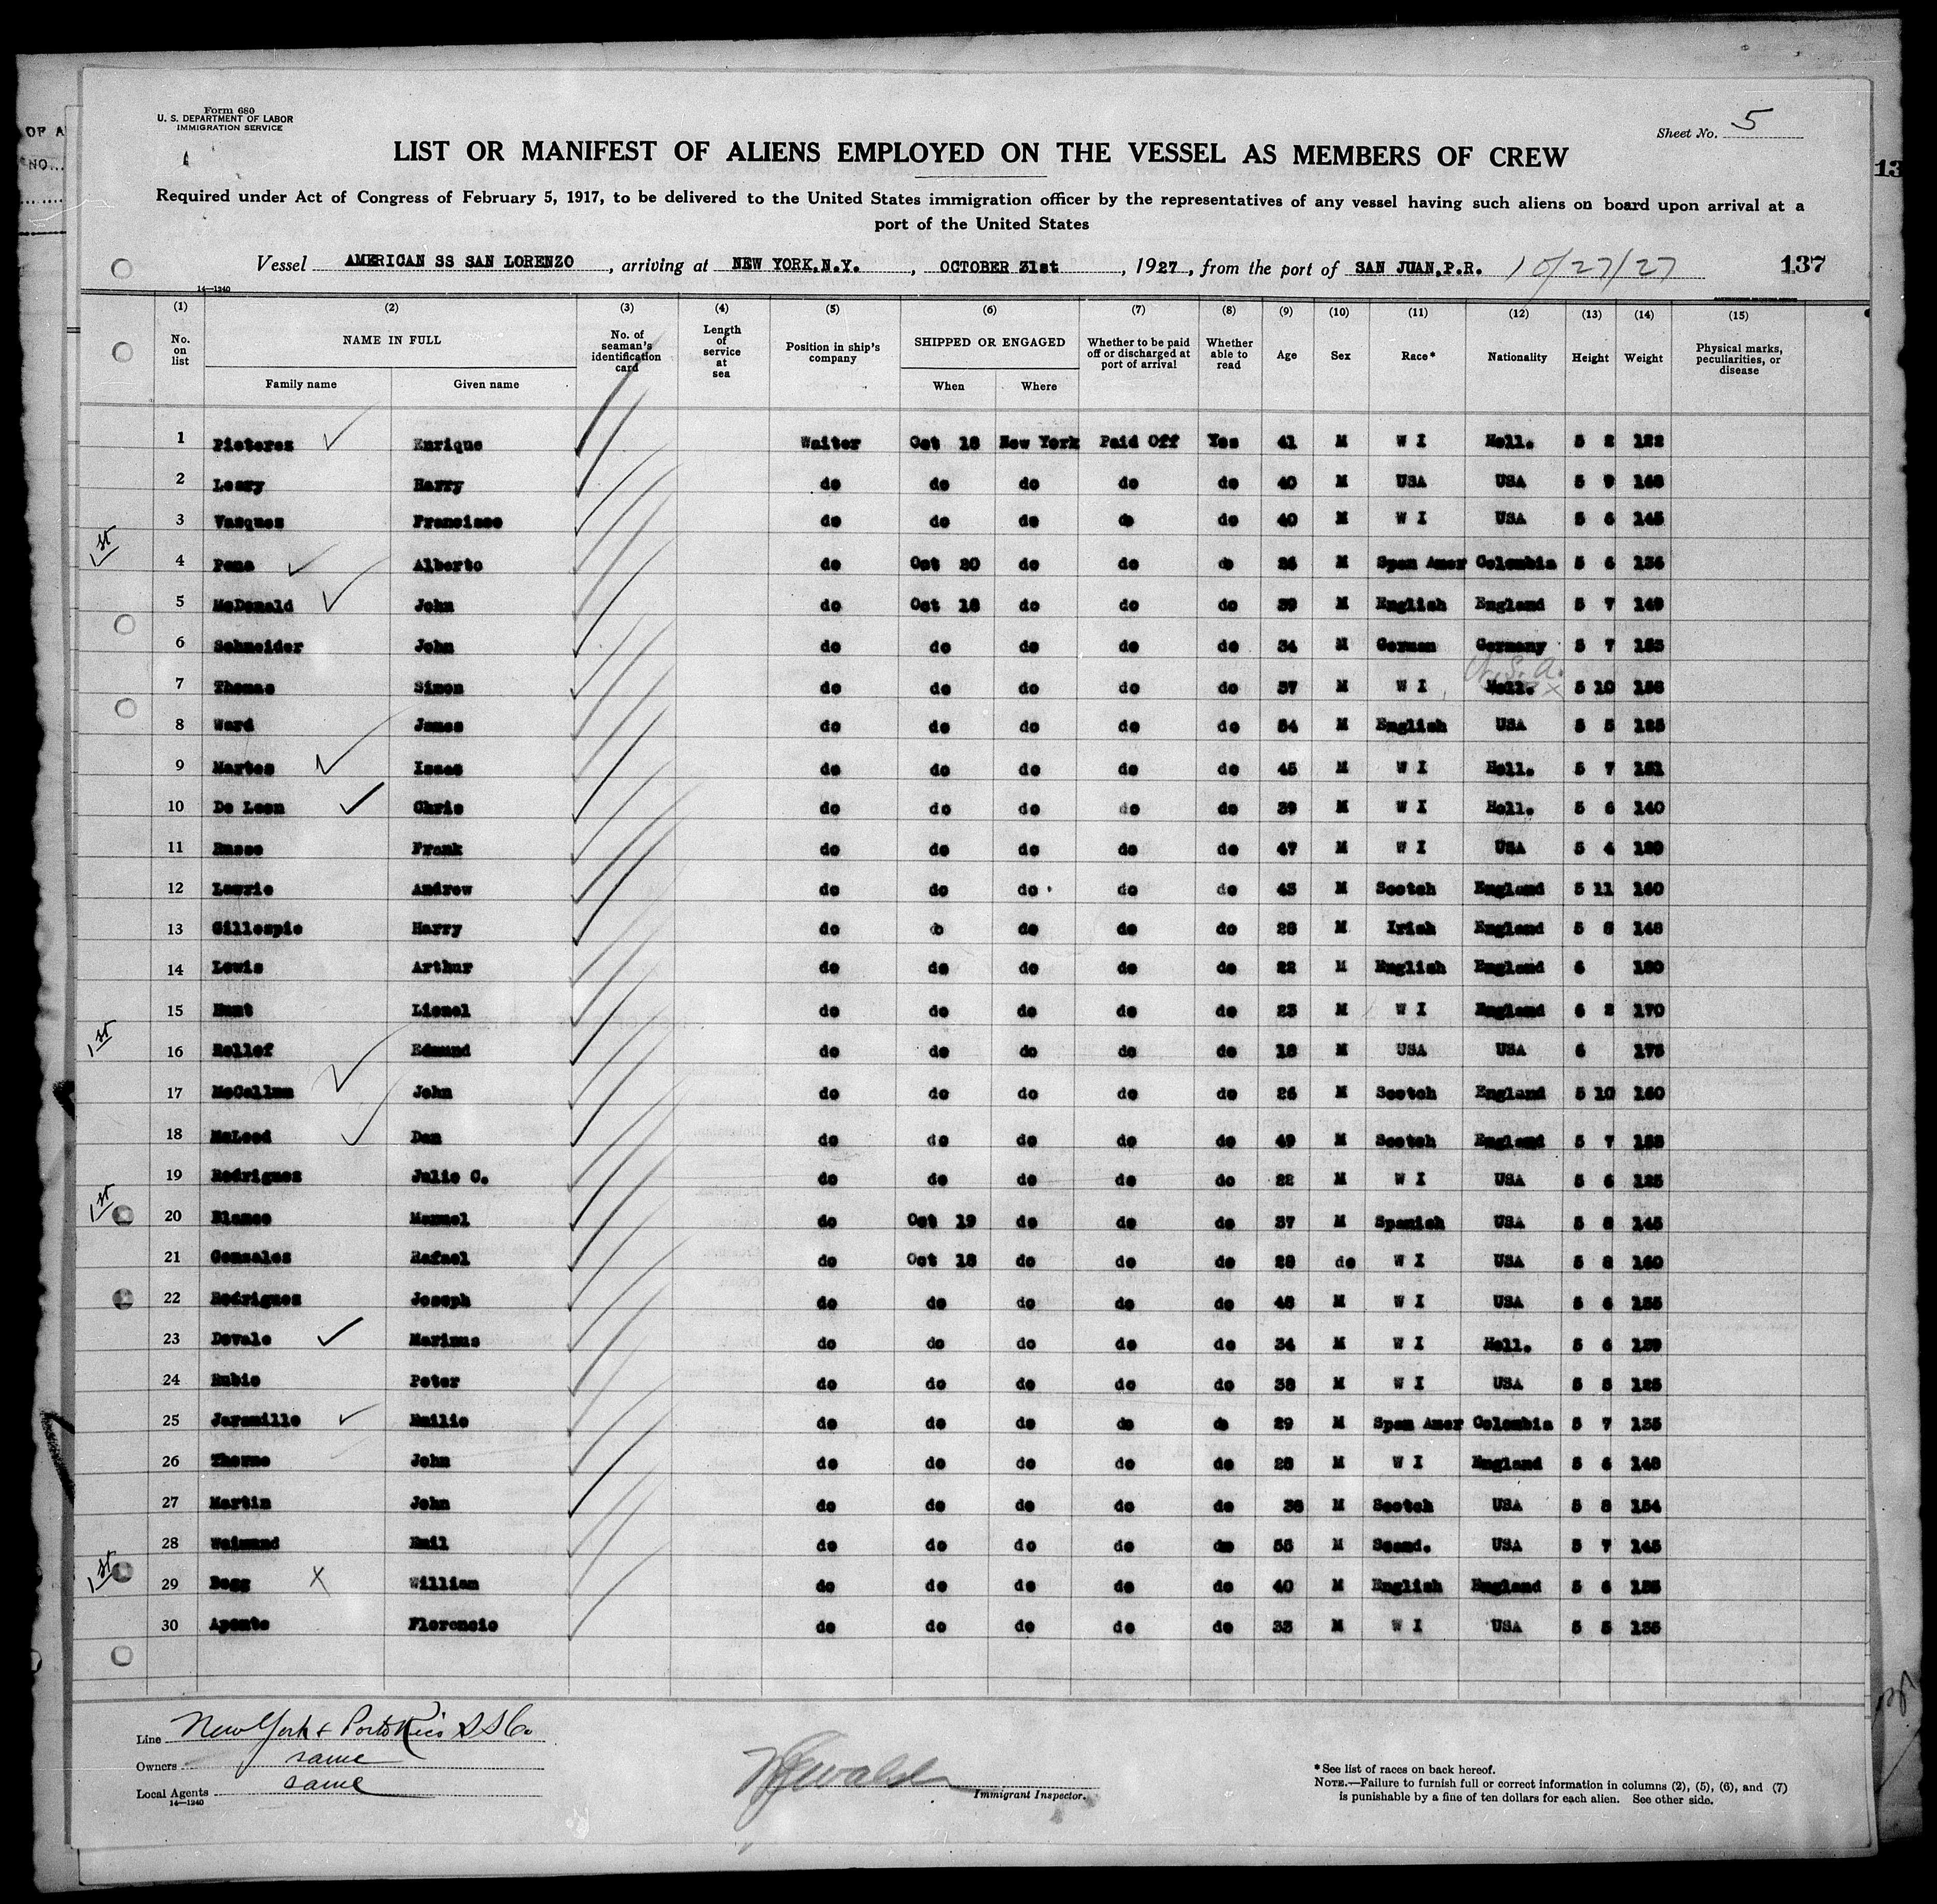 Form 680
U. S. DEPARTMENT OF LABOR
IMMIGRATION SERVICE
Sheet No. 5
LIST OR MANIFEST OF ALIENS EMPLOYED ON THE VESSEL AS MEMBERS OF CREW
Required under Act of Congress of February 5, 1917, to be delivered to the United States immigration officer by the representatives of any vessel having such aliens on board upon arrival at a
port of the United States
Vessel AMERICAN SS SAN LORENZO, arriving at NEW YORK,N.Y., OCTOBER 31st, 1927, from the port of SAN JUAN,P.R. 10/27/27 137
14—1240
(1) (2) (3) (4) (5) (6) (7) (8) (9) (10) (11) (12) (13) (14) (15)
No. on list NAME IN FULL Family name Given name No. of seaman's identification card Length of service at sea Position in ship's company SHIPPED OR ENGAGED When Where Whether to be paid off or discharged at port of arrival Whether able to read Age Sex Race* Nationality Height Weight Physical marks, peculiarities, or disease
1 Pieterez Enrique Waiter Oct 18 New York Paid Off Yes 41 M W I Holl. 5 2 122
2 Leary Harry do do do do do 40 M USA USA 5 9 168
3 Vasquez Francisco do do do do do 40 M W I USA 5 6 145
1st
4 Pena Alberto do Oct 20 do do do 26 M Span Amer Colombia 5 6 136
5 McDonald John do Oct 18 do do do 39 M English England 5 7 149
6 Schneider John do do do do do 34 M German Germany 5 7 153
U.S.A.
7 Thomas Simon do do do do do 37 M W I Holl. x 5 10 156
8 Ward James do do do do do 54 M English USA 5 5 125
9 Martes Isaac do do do do do 45 M W I Holl. 5 7 151
10 De Leon Chris do do do do do 39 M W I Holl. 5 6 140
11 Russo Frank do do do do do 47 M W I USA 5 4
12 Laurie Andrew do do do do do 43 M Scotch England 5 11 160
13 Gillespie Harry do do do do do 28 M Irish England 5 8 148
14 Lewis Arthur do do do do do 22 M English England 6 180
15 Hunt Lionel do do do do do 23 M W I England 6 2 170
1st
16 Edmund do do do do do 18 M USA USA 6 175
17 McCallum John do do do do do 26 M Scotch England 5 10 160
18 McLeod Dan do do do do do 49 M Scotch England 5 7
19 Rodriguez Julio C. do do do do do 22 M W I USA 5 6 125
1st
20 Blanco Manuel do Oct 19 do do do 37 M Spanish USA 5 8 145
21 Gonzales Rafael do Oct 18 do do do 28 do W I USA 5 8 160
22 Rodriguez Joseph do do do do do 48 M W I USA 5 6 155
23 Devale Marinus do do do do do 34 M W I Holl. 5 6 139
24 Rubio Peter do do do do do 38 M W I USA 5 5 125
25 Jaramillo Emilio do do do do do 29 M Span Amer Colombia 5 7 135
26 Thorne John do do do do do 28 M W I England 5 6 148
27 Martin John do do do do do 38 M Scotch USA 5 8 154
28 Weimund Emil do do do do do 55 M Scand. USA 5 7 145
1st
29 Begg X William do do do do do 40 M English England 5 6 135
30 Aponte Florencio do do do do do 33 M W I USA 5 5 135
Line New York & Porto Rico SS Co.
Owners same
Local Agents same
14—1240
Immigrant Inspector.
*See list of races on back hereof.
NOTE.—Failure to furnish full or correct information in columns (2), (5), (6), and (7)
is punishable by a fine of ten dollars for each alien. See other side.